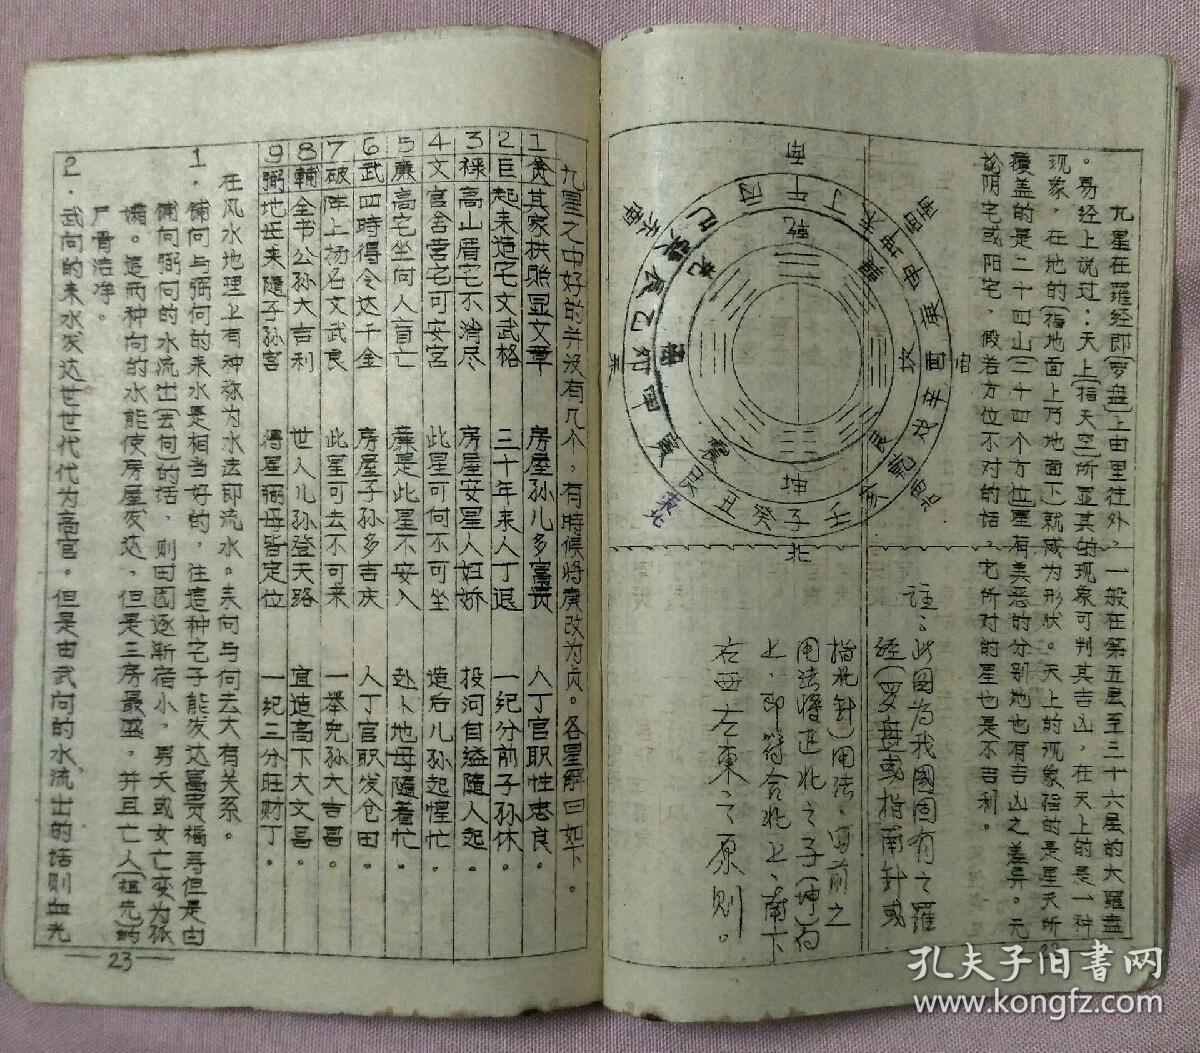 九星在羅经即(罗盘)上由里往外,一般在第五层至三十六层的大羅盘
。易经上说过:天上(指天空)所显其的现象可判其吉凶,在天上的是一种
现象,在地的(指地面上乃地面下)就咸为形状。天上的现象指的是星天所
覆盖的是二十四山(二十四个方位)星有美恶的分别地也有吉凶之差异。无
论阴宅或阳宅,假若方位不对的话,它所对的星也是不吉利。
註:此图为我國固有之羅
经(罗盘或指南针或
指北针)用法,
用法将正北之子(坤)向
上,即符合北上、南下
右西左東之原则。
南
西南
西
西北
北
東北
东
东南
午丁未坤申庚酉辛戌乾亥壬子癸丑艮寅甲卯乙辰巽巳丙
乾
巽
坎
艮
坤
震
離
兑
九星之中好的并没有几个,有時候将廉改为贞。各星解曰如下。
1贪其家拱照显文章 房屋孙儿多富贵 人丁官职性忠良。
2巨起来造宅文武格 三十年来人丁退 一纪分前子孙休。
3禄高山厝宅不消尽 房屋安星人妇娇 投河自溢隨人起。
4文官舍营宅可安宫 此星可向不可坐 造后儿孙起惶忙。
5廉高宅坐向人盲亡 廉是此星不安入 赴卜地母隨着忙。
6武四時得令达千金 房屋子孙多吉庆 人丁官职发仓田。
7破阵上扬名文武良 此星可去不可来 一举兒孙大吉昌。
8輔全书公孙大吉利 世人儿孙登天路 宜造高下大文昌。
9弼地母来隨子孙宫 得星弼母皆定位 一纪三分旺财丁。
在风水地理上有种称为水法即流水。来向与何去大有关系。
1.辅向与弼向的来水是相当好的,住這种宅子能发达富贵福寿但是由
辅向弼向的水流出(去向)的话,则田园逐渐宿小,男夭或女亡变为孤
孀。這两种向的水能使房屋发达,但是三房最盛,并且亡人(祖先)的
尸骨洁净。
2.武向的来水发达世世代代为高官。但是由武向的水流出的话则血光
23
孔夫子旧书网
www.kongfz.com